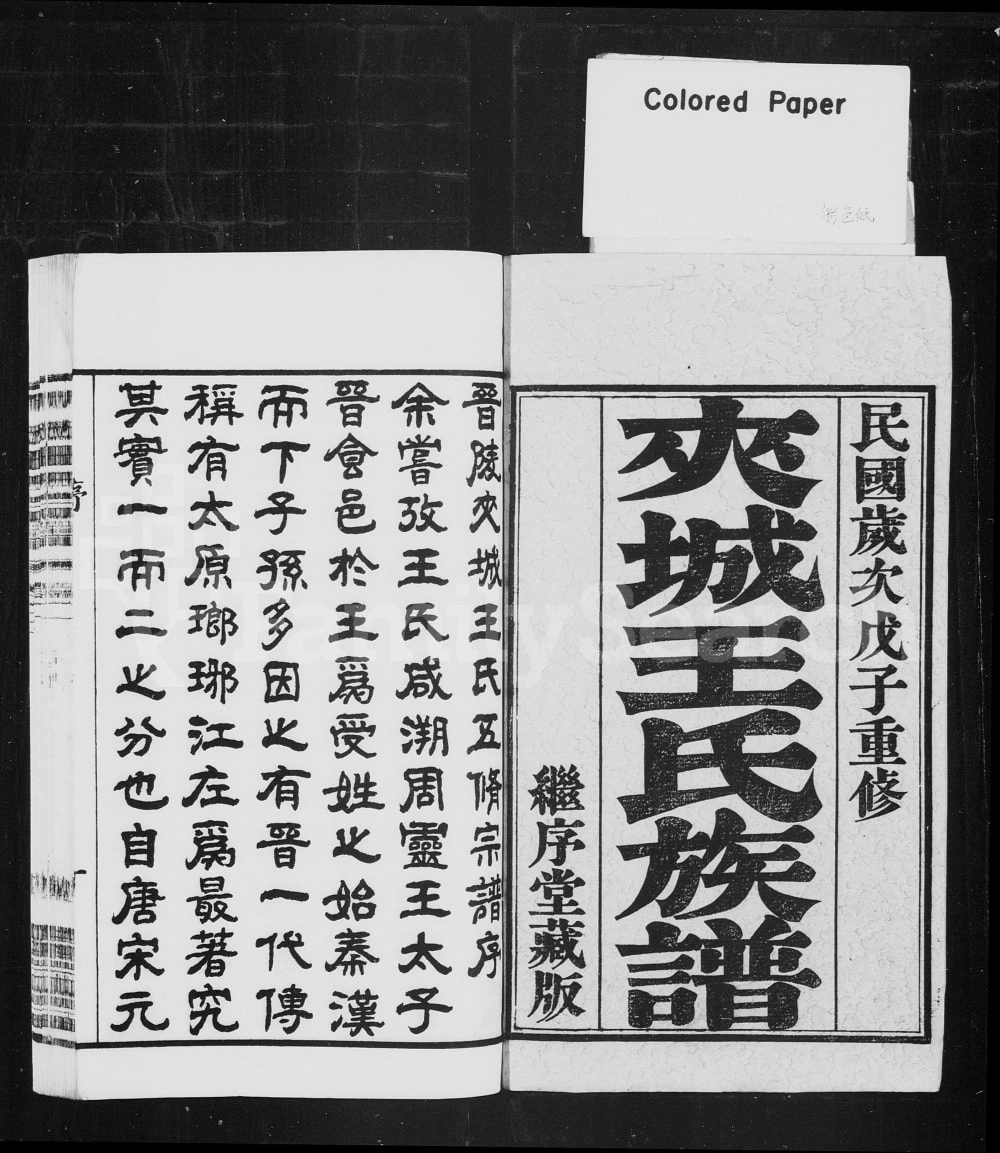 Colored Paper
彩色紙
民國歲次戊子重修
夾城王氏族譜
繼序堂藏版
晉陵夾城王氏五脩宗譜序
余嘗攷王氏咸溯周靈王太子
晉食邑於王爲受姓之始秦漢
而下子孫多因之有晉一代傳
稱有太原瑯琊江左爲最著究
其實一而二之分也自唐宋元
序
一
FamilySearch